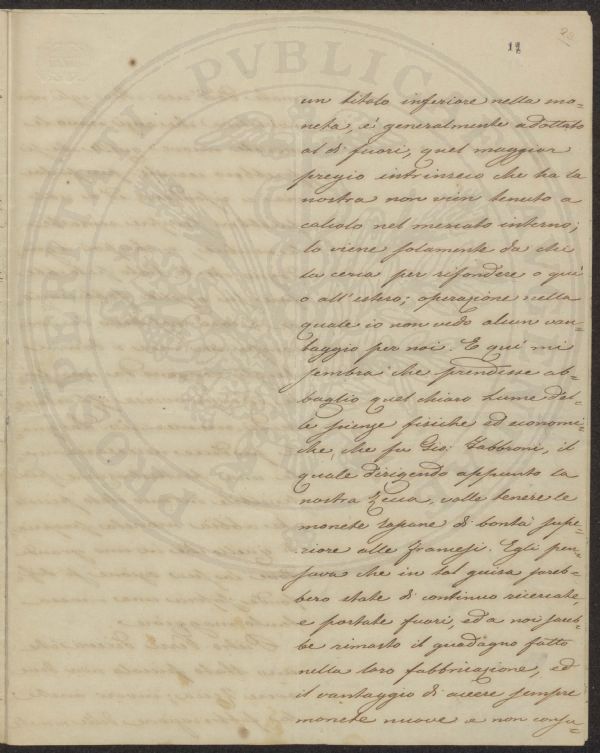 12
un titolo inferiore nella mo=
neta, e' generalmente adottato
al di fuori, quel maggior
pregio intrinseco che ha la
nostra non vien tenuto a
calcolo nel mercato interno;
lo viene solamente da chi
la cerca per rifondere o qui
o all'estero; operazione nella
quale io non vedo alcun van=
taggio per noi. E qui mi
sembra che prendesse ab=
baglio quel chiaro lume del=
le scienze fisiche ed economi=
che, che fu Gio: Fabbroni, il
quale dirigendo appunto la
nostra Zecca, volle tenere le
monete toscane di bontà supe=
riore alle francesi. Egli pen=
sava che in tal guisa sareb=
bero state di continuo ricercate,
e portate fuori, ed a noi sareb=
be rimasto il guadagno fatto
nella loro fabbricazione, ed
il vantaggio di avere sempre
monete nuove e non consu=
PROSPERITATI PVBLICAE